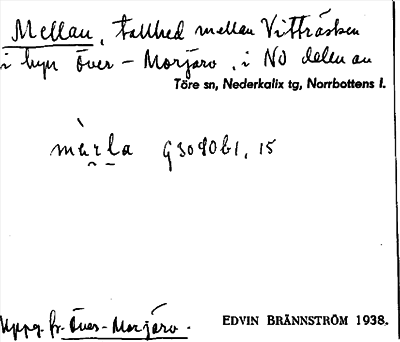 Mellan, tallhed mellan Vitträsken
i byn Över-Morjärv, i NO delen av
Töre sn, Nederkalix tg, Norrbottens l.
mὰrla G3040b1, 15
Uppg. fr. Över-Morjärv.
EDVIN BRÄNNSTRÖM 1938.